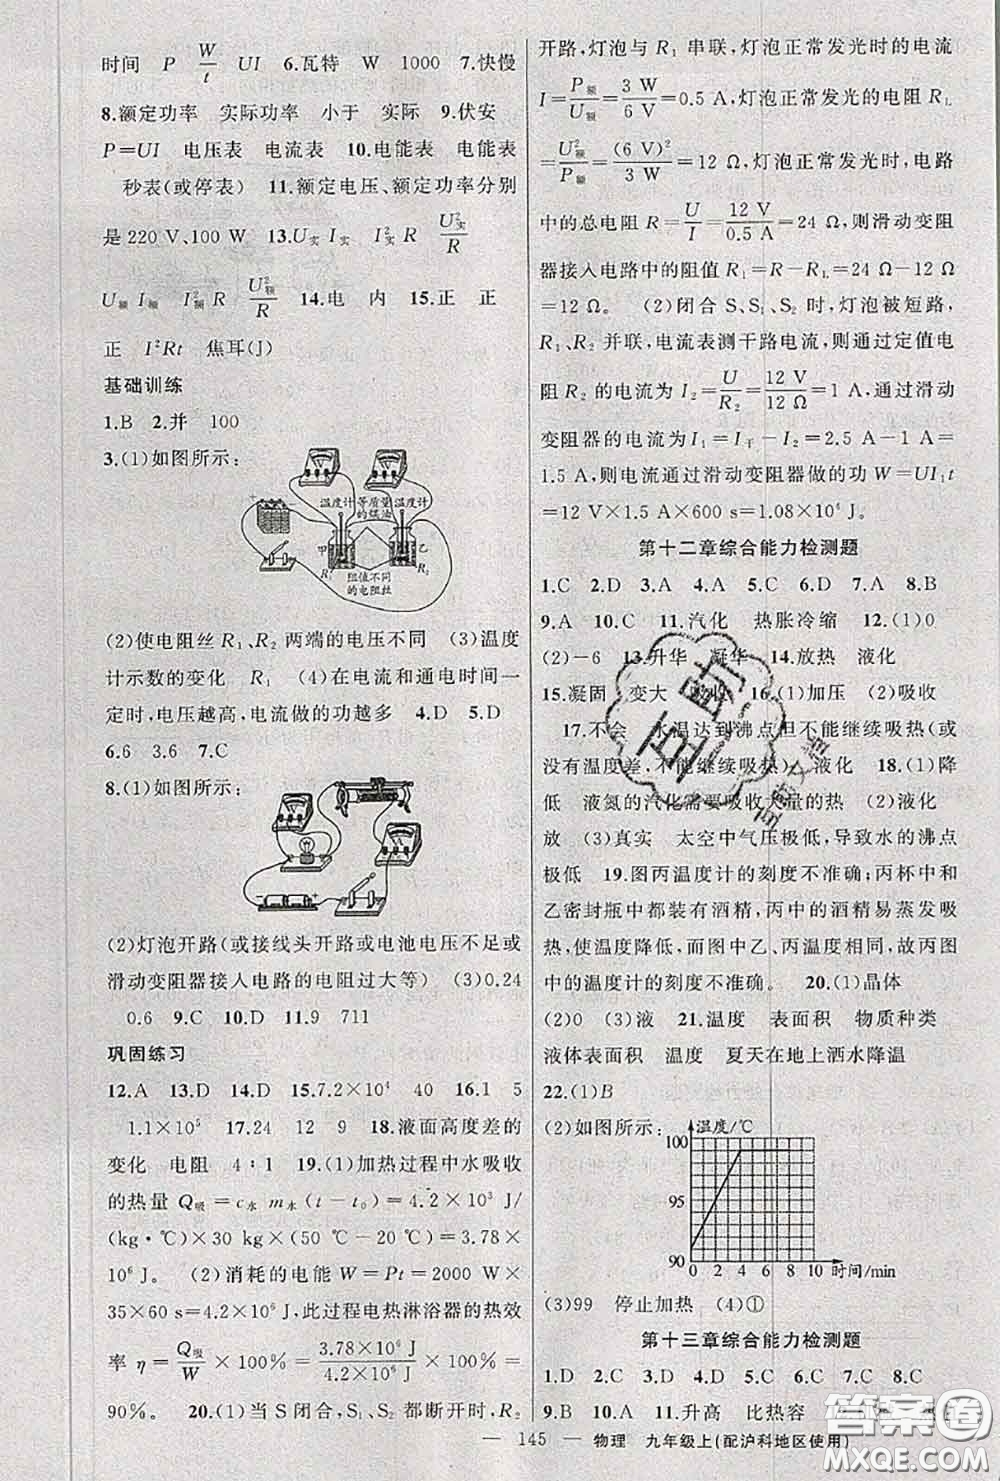 时间 P W/t UI 6.瓦特 W 1000 7.快慢
8.额定功率 实际功率 小于 实际 9.伏安
P=UI 电压表 电流表 10.电能表 电能表
秒表(或停表) 11.额定电压、额定功率分别
是 220 V、100 W 13.U实 I实 I²实 R U²实/R
U额 I额 I²额 R U²额/R 14.电 内 15.正 正
正 I²Rt 焦耳(J)
基础训练
1.B 2.并 100
3.(1)如图所示:
温度计 等质量的煤油 温度计
甲 乙
R₁
阻值不同的电阻丝
(2)使电阻丝 R₁、R₂ 两端的电压不同 (3)温度
计示数的变化 R₁ (4)在电流和通电时间一
定时,电压越高,电流做的功越多 4.D 5.D
6.6 3.6 7.C
8.(1)如图所示:
(2)灯泡开路(或接线头开路或电池电压不足或
滑动变阻器接人电路的电阻过大等) (3)0.24
0.6 9.C 10.D 11.9 711
巩固练习
12.A 13.D 14.D 15.7.2×10⁴ 40 16.1 5
1.1×10⁵ 17.24 12 9 18.液面高度差的
变化 电阻 4∶1 19.(1)加热过程中水吸收
的热量 Q吸=c水 m水(t-t₀)=4.2×10³ J/
(kg·℃)×30 kg×(50 ℃-20 ℃)=3.78×
10⁶ J。 (2)消耗的电能 W=Pt=2000 W×
35×60 s=4.2×10⁶ J,此过程电热淋浴器的热效
率 η=Q吸/W×100%=3.78×10⁶ J/4.2×10⁶ J×100%=
90%。 20.(1)当 S 闭合,S₁、S₂ 都断开时,R₂
开路,灯泡与 R₁ 串联,灯泡正常发光时的电流
I=P额/U额=3 W/6 V=0.5 A,灯泡正常发光的电阻 RL
=U²额/P额=(6 V)²/3 W=12 Ω,灯泡正常发光时,电路
中的总电阻 R=U/I=12 V/0.5 A=24 Ω,则滑动变阻
器接入电路中的阻值 R₁=R-RL=24 Ω-12 Ω
=12 Ω。 (2)闭合 S、S₁、S₂ 时,灯泡被短路,
R₁、R₂ 并联,电流表测干路电流,则通过定值电
阻 R₂ 的电流为 I₂=U/R₂=12 V/12 Ω=1 A,通过滑动
变阻器的电流为 I₁=I干-I₂=2.5 A-1 A=
1.5 A,则电流通过滑动变阻器做的功 W=UI₁t
=12 V×1.5 A×600 s=1.08×10⁴ J。
第十二章综合能力检测题
1.C 2.D 3.A 4.A 5.C 6.D 7.A 8.B
9.A 10.C 11.汽化 热胀冷缩 12.(1)0
(2)-6 13.升华 凝华 14.放热 液化
15.凝固 变大 吸收 16.(1)加压 (2)吸收
17.不会 水温达到沸点但不能继续吸热(或
没有温度差,不能继续吸热) 液化 18.(1)降
低 液氮的汽化需要吸收大量的热 (2)液化
放 (3)真实 太空中气压极低,导致水的沸点
极低 19.图丙温度计的刻度不准确;丙杯中和
乙密封瓶中都装有酒精,丙中的酒精易蒸发吸
热,使温度降低,而图中乙、丙温度相同,故丙图
中的温度计的刻度不准确。 20.(1)晶体
(2)0 (3)液 21.温度 表面积 物质种类
液体表面积 温度 夏天在地上洒水降温
22.(1)B
(2)如图所示:
温度/℃
100
95
90
0 2 4 6 8 10 时间/min
(3)99 停止加热 (4)①
第十三章综合能力检测题
1.D 2.C 3.C 4.D 5.D 6.C 7.C 8.C
9.B 10.A 11.升高 比热容
— 145 — 物理 九年级上(配沪科地区使用)
互助
答案圈
MXQE.COM